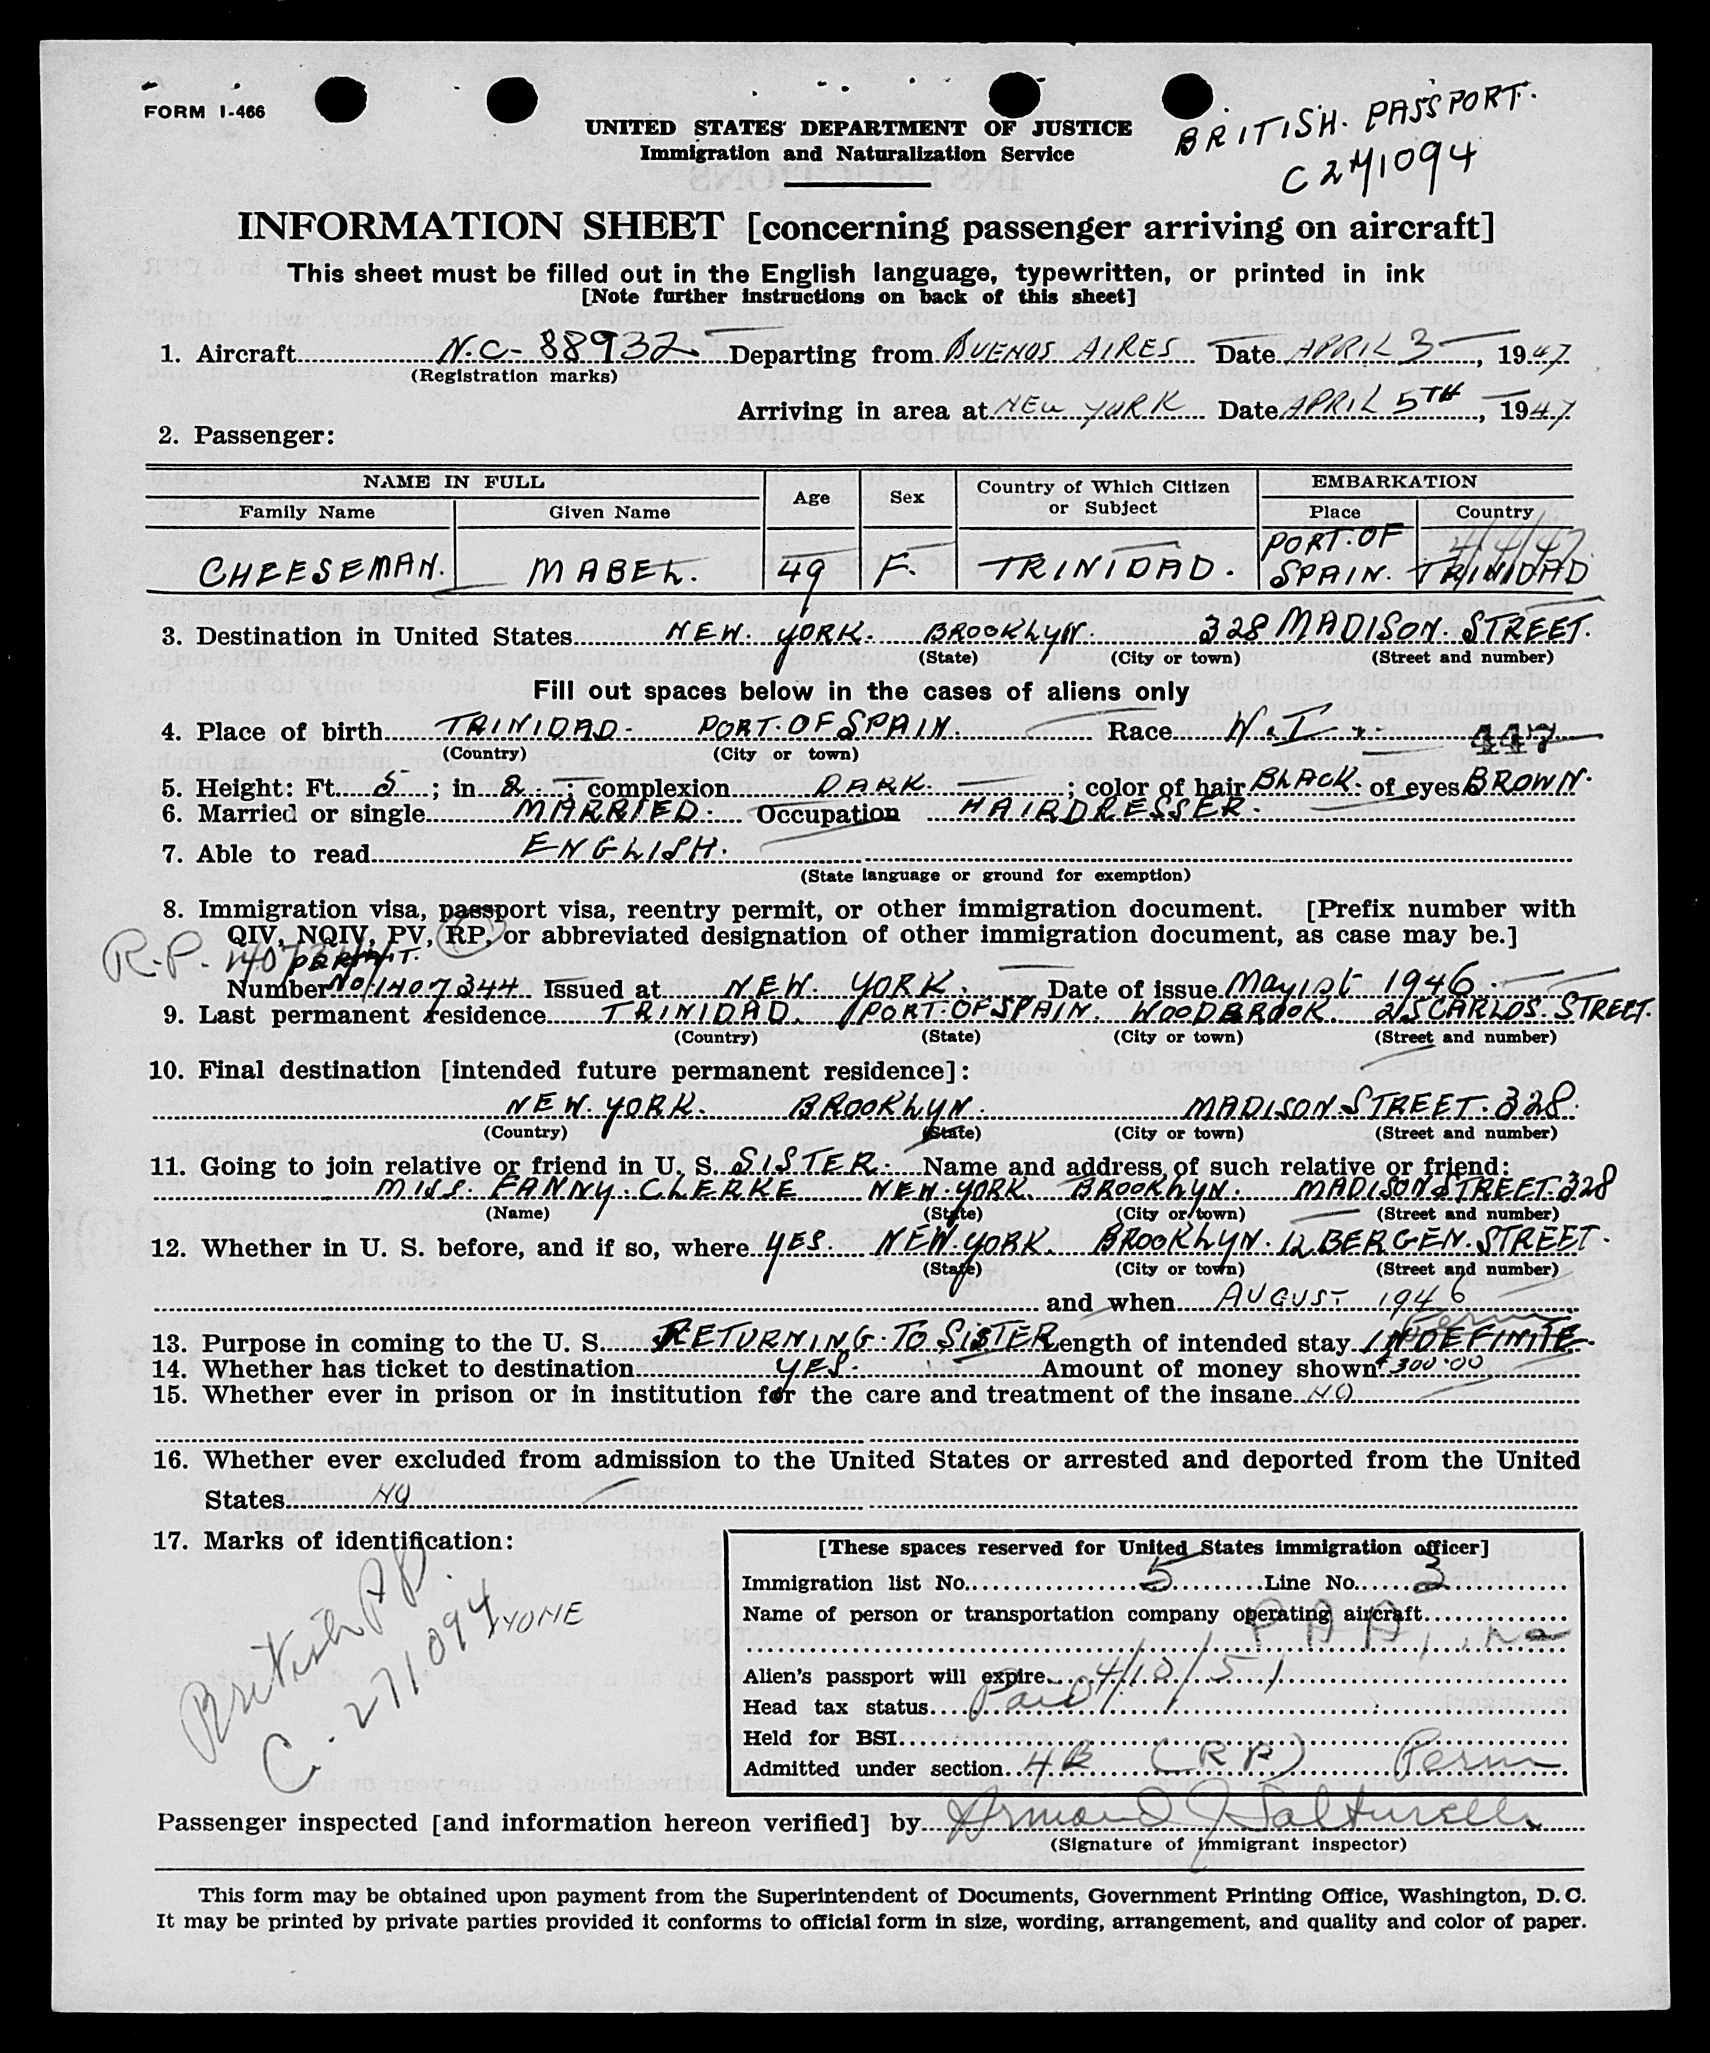 FORM I-466
UNITED STATES DEPARTMENT OF JUSTICE
Immigration and Naturalization Service
BRITISH. PASSPORT.
C 271094
INFORMATION SHEET [concerning passenger arriving on aircraft]
This sheet must be filled out in the English language, typewritten, or printed in ink
[Note further instructions on back of this sheet]
1. Aircraft N.C-88932 Departing from BUENOS AIRES Date APRIL 3, 1947
(Registration marks)
Arriving in area at NEW YORK Date APRIL 5TH, 1947
2. Passenger:
NAME IN FULL Age Sex Country of Which Citizen or Subject EMBARKATION
Family Name Given Name Place Country
4/4/47
CHEESEMAN. MABEL. 49 F. TRINIDAD. PORT.OF SPAIN. TRINIDAD
3. Destination in United States NEW. YORK. BROOKLYN. 328 MADISON. STREET.
(State) (City or town) (Street and number)
Fill out spaces below in the cases of aliens only
4. Place of birth TRINIDAD- PORT.OF SPAIN. Race W.I. 447
(Country) (City or town)
5. Height: Ft. 5; in 2; complexion DARK.; color of hair BLACK. of eyes BROWN.
6. Married or single MARRIED. Occupation HAIRDRESSER.
7. Able to read ENGLISH.
(State language or ground for exemption)
8. Immigration visa, passport visa, reentry permit, or other immigration document. [Prefix number with
QIV, NQIV, PV, RP, or abbreviated designation of other immigration document, as case may be.]
R.P. PERMIT.
Number No/1407344 Issued at NEW. YORK. Date of issue May 1st 1946.
9. Last permanent residence TRINIDAD. PORT.OF SPAIN. WOODBROOK. 21 S CARLOS. STREET.
(Country) (State) (City or town) (Street and number)
10. Final destination [intended future permanent residence]:
NEW. YORK. BROOKLYN. MADISON.STREET.328.
(Country) (State) (City or town) (Street and number)
11. Going to join relative or friend in U. S. SISTER. Name and address of such relative or friend:
MISS. FANNY. CLERKE NEW.YORK. BROOKLYN. MADISON STREET.328
(Name) (State) (City or town) (Street and number)
12. Whether in U. S. before, and if so, where YES. NEW.YORK. BROOKLYN. 12 BERGEN. STREET.
(State) (City or town) (Street and number)
and when AUGUST 1946
Perm
13. Purpose in coming to the U. S. RETURNING. TO SISTER Length of intended stay INDEFINITE.
14. Whether has ticket to destination YES. Amount of money shown $300.00
15. Whether ever in prison or in institution for the care and treatment of the insane NO
16. Whether ever excluded from admission to the United States or arrested and deported from the United
States NO
17. Marks of identification:
British PP.
C. 271094
NONE
[These spaces reserved for United States immigration officer]
Immigration list No. 5 Line No. 3
Name of person or transportation company operating aircraft
P A A, Inc
Alien's passport will expire 4/3/51
Head tax status Paid
Held for BSI
Admitted under section 4B (RP) Perm
Passenger inspected [and information hereon verified] by Armand J Salturelli
(Signature of immigrant inspector)
This form may be obtained upon payment from the Superintendent of Documents, Government Printing Office, Washington, D. C.
It may be printed by private parties provided it conforms to official form in size, wording, arrangement, and quality and color of paper.